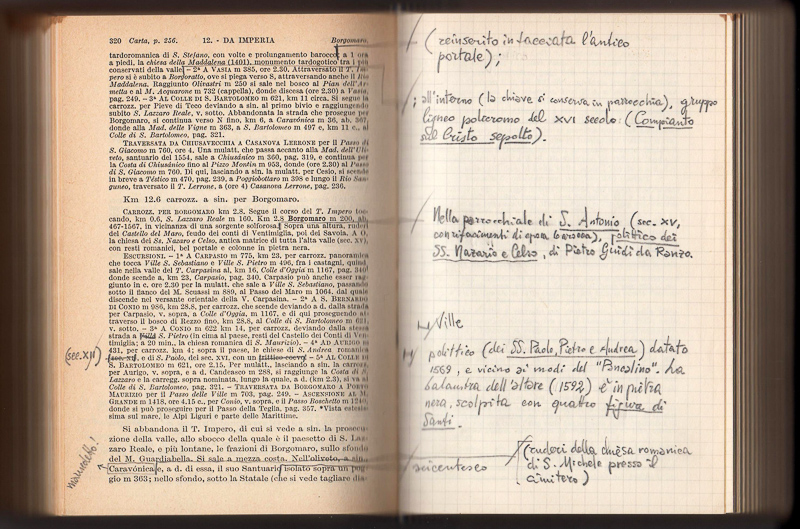 320 Carta, p. 256. 12. - DA IMPERIA Borgomaro.
tardoromanica di S. Stefano, con volte e prolungamento barocco, a 1 ora
a piedi, la chiesa della Maddalena (1401), monumento tardogotico tra i più
conservati della valle. - 2ª A VASIA m 385, ore 2.30. Attraversato il T. Im-
pero si è subito a Borgoratto, ove si piega verso S, attraversando anche il Rio
Maddalena. Raggiunto Olivastri m 250 si sale nel bosco al Pian dell'Ar-
metta e al M. Acquarone m 732 (cappella), donde discesa (ore 2.30) a Vasia,
pag. 249. - 3ª AL COLLE DI S. BARTOLOMEO m 621, km 11 circa. Si segue la
carrozz. per Pieve di Teco deviando a sin. al primo bivio e raggiungendo
subito S. Lazzaro Reale, v. sotto. Abbandonata la strada che prosegue per
Borgomaro, si continua verso N fino, km 6, a Caravónica m 36, ab. 367,
donde alla Mad. delle Vigne m 363, a S. Bartolomeo m 497 e, km 11 c., al
Colle di S. Bartolomeo, pag. 321.
TRAVERSATA DA CHIUSAVECCHIA A CASANOVA LERRONE per il Passo di
S. Giacomo m 760, ore 4. Una mulatt. che passa accanto alla Mad. dell'Uli-
veto, santuario del 1554, sale a Chiusánico m 360, pag. 319, e continua per
la Costa di Chiusánico fino al Pizzo Montin m 953, donde (ore 2.30) al Passo
di S. Giacomo m 760. Di qui, lasciando a sin. la mulatt. per Cesio, si scende
in breve a Téstico m 470, pag. 239, a Poggiobottaro m 398 e lungo il Rio San-
guneo, traversato il T. Lerrone, a (ore 4) Casanova Lerrone, pag. 236.
Km 12.6 carrozz. a sin. per Borgomaro.
CARROZZ. PER BORGOMARO km 2.8. Segue il corso del T. Impero toc-
cando, km 0.6, S. Lazzaro Reale m 160. Km 2.8 Borgomaro m 200, ab.
467-1567, in vicinanza di una sorgente solforosa. Sopra una altura, ruderi
del Castello del Maro, feudo dei conti di Ventimiglia, poi dei Savoia. A O,
la chiesa dei Ss. Nazaro e Celso, antica matrice di tutta l'alta valle (sec. XV),
con resti romanici, bel portale e colonne in pietra nera.
ESCURSIONI. - 1ª A CARPASIO m 775, km 23, per carrozz. panoramica
che tocca Ville S. Sebastiano e Ville S. Pietro m 496, fra i castagni, quindi
sale nella valle del T. Carpasina al, km 16, Colle d'Oggia m 1167, pag. 340,
donde scende a, km 23, Carpasio, pag. 340. Carpasio può anche esser rag-
giunto in c. ore 2.30 per la mulatt. che sale a Ville S. Sebastiano, passando
sotto il fianco del M. Scuassi m 889, al Passo del Maro m 1064, dal quale
discende nel versante orientale della V. Carpasina. - 2ª A S. BERNARDO
DI CONIO m 986, km 28.8, per carrozz. che scende deviando a d. dalla strada
per Carpasio, v. sopra, a Colle d'Oggia, m 1167, e di qui proseguendo at-
traverso il bosco di Rezzo fino, km 28.8, al Colle di S. Bartolomeo m 621,
v. sotto. - 3ª A CONIO m 622 km 14, per carrozz. deviando dalla stessa
strada a Ville S. Pietro (in cima al paese, resti del Castello dei Conti di Ven-
timiglia; a 20 min., la chiesa romanica di S. Maurizio). - 4ª AD AURIGO m
431, per carrozz. km 4; sopra il paese, le chiese di S. Andrea romanica
(sec. XI), e di S. Paolo, del sec. XVI, con un trittico coevo. - 5ª AL COLLE DI
S. BARTOLOMEO m 621, ore 2.15. Per mulatt., lasciando a sin. la carrozz.
per Aurigo, v. sopra, e a d. Candeasco m 288, si raggiunge la Costa di S.
Lazzaro e la carrozz. sopra nominata, lungo la quale, a d. (km 2.3), si va al
Colle di S. Bartolomeo, pag. 321. - TRAVERSATA DA BORGOMARO A PORTO
MAURIZIO per il Passo delle Ville m 703, pag. 249. - ASCENSIONE AL M.
GRANDE m 1418, ore 4.15 c., per Conio, v. sopra, e il Passo Boschetto m 1240,
donde si può proseguire per il Passo della Teglia, pag. 357. *Vista estesis-
sima sul mare, le Alpi Liguri e parte delle Marittime.
Si abbandona il T. Impero, di cui si vede a sin. la prosecu-
zione della valle, allo sbocco della quale è il paesetto di S. Laz-
zaro Reale, e più lontane, le frazioni di Borgomaro, sullo sfondo
del M. Guardiabella. Si sale a mezza costa. Nell'oliveto, a sin.,
Caravónica e, a d. di essa, il suo Santuario isolato sopra un pog-
gio m 363; nello sfondo, sotto la Statale (che si vede tagliare dia-
(sec. XII)
maledetto!
(reinserito in facciata l'antico
portale);
; all'interno (la chiave si conserva in parrocchia), gruppo
ligneo policromo del XVI secolo: (Compianto
sul Cristo sepolto).
Nella parrocchiale di S. Antonio (sec. XV,
con rifacimenti di epoca barocca), polittico dei
SS. Nazario e Celso, di Pietro Guidi da Ranzo.
Ville
polittico (dei SS. Paolo, Pietro e Andrea) datato
1569, e vicino ai modi del "Pancalino". La
balaustra dell'altare (1592) è in pietra
nera, scolpita con quattro figure di
Santi.
seicentesco
(ruderi della chiesa romanica
di S. Michele presso il
cimitero)